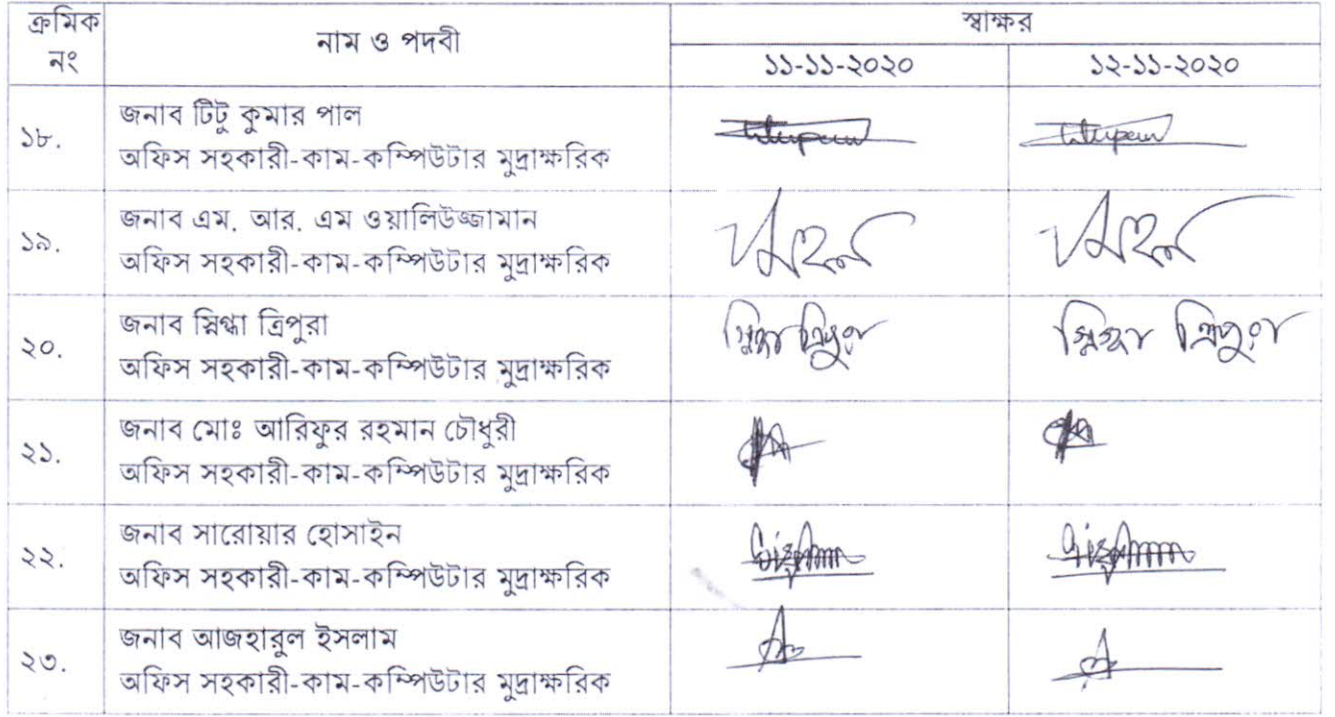 ক্রমিক নং
নাম ও পদবী
স্বাক্ষর
১১-১১-২০২০
১২-১১-২০২০
১৮.
জনাব টিটু কুমার পাল
অফিস সহকারী-কাম-কম্পিউটার মুদ্রাক্ষরিক
১৯.
জনাব এম. আর. এম ওয়ালিউজ্জামান
অফিস সহকারী-কাম-কম্পিউটার মুদ্রাক্ষরিক
২০.
জনাব স্নিগ্ধা ত্রিপুরা
অফিস সহকারী-কাম-কম্পিউটার মুদ্রাক্ষরিক
স্নিগ্ধা ত্রিপুরা
স্নিগ্ধা ত্রিপুরা
২১.
জনাব মোঃ আরিফুর রহমান চৌধুরী
অফিস সহকারী-কাম-কম্পিউটার মুদ্রাক্ষরিক
২২.
জনাব সারোয়ার হোসাইন
অফিস সহকারী-কাম-কম্পিউটার মুদ্রাক্ষরিক
২৩.
জনাব আজহারুল ইসলাম
অফিস সহকারী-কাম-কম্পিউটার মুদ্রাক্ষরিক